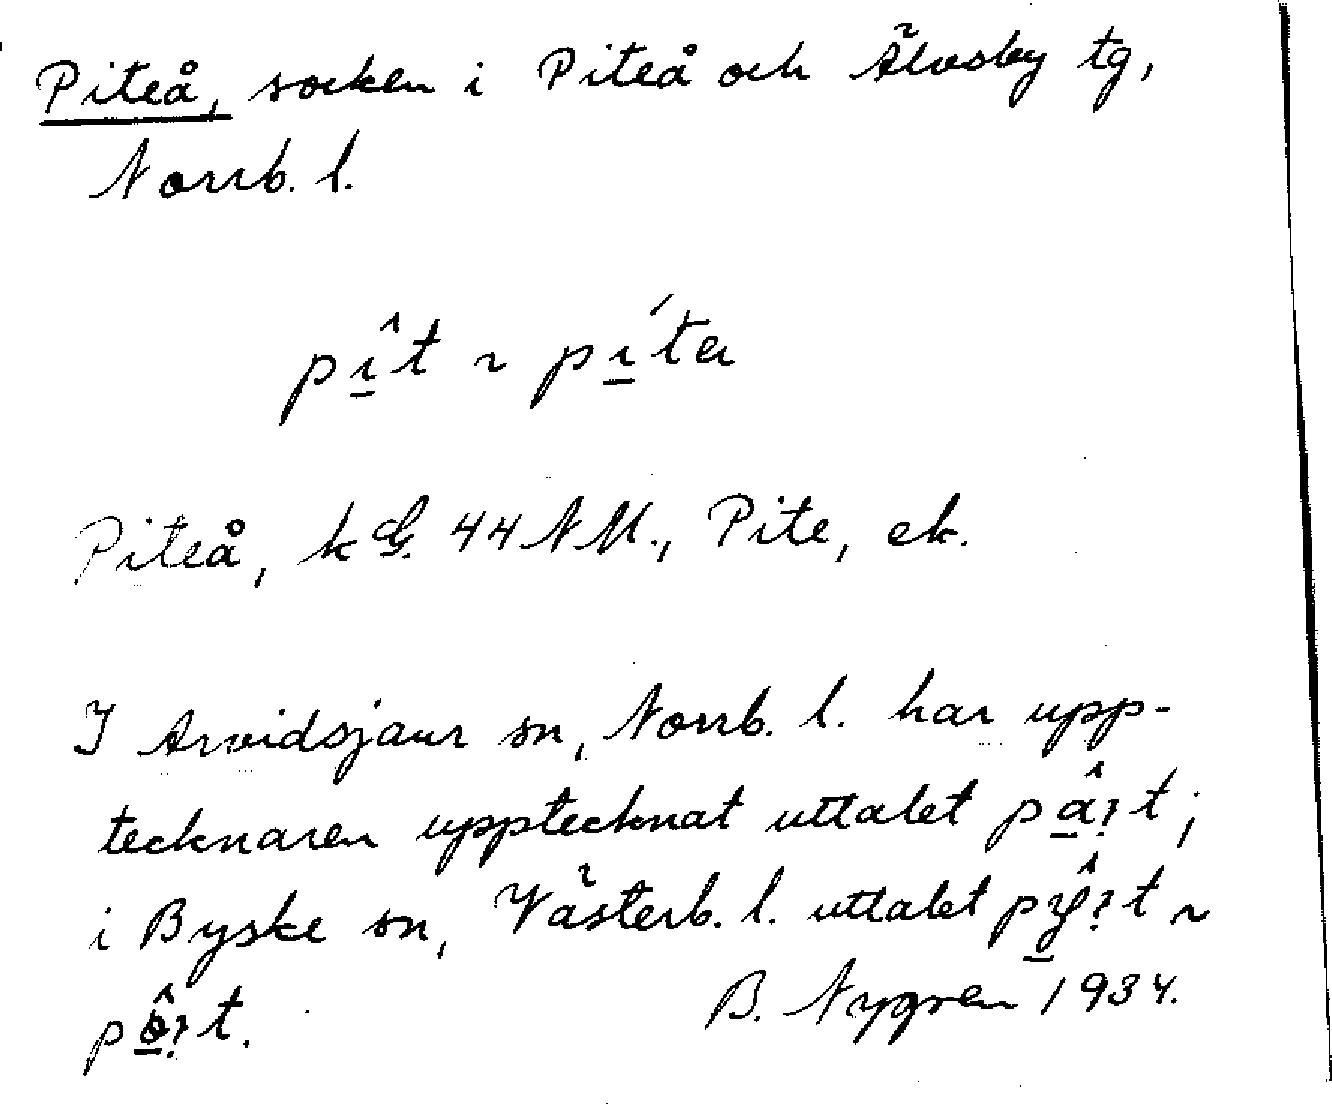 Piteå, socken i Piteå och Älvsby tg,
Norrb. l.
pî̱t ~ pí̱ta
Piteå, k G. 44 NM., Pite, ek.
I Arvidsjaur sn, Norrb. l. har upp-
tecknaren upptecknat uttalet
i Byske sn, Västerb. l. uttalet
B. Nygren 1934.